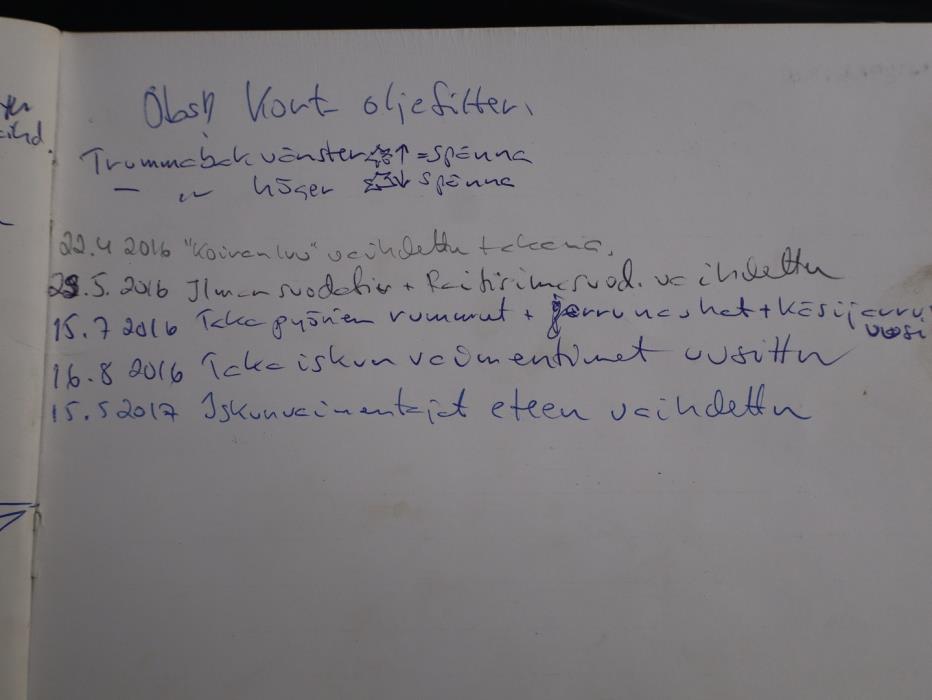 Obs!! Kort oljefilter.
Trummabak vänster ↑ = spänna
— " — höger ↓ spänna
22.4 2016 "Koiranluu" vaihdettu takana.
29.5. 2016 Ilmansuodatin + Raitisilmasuod. vaihdettu
15.7 2016 Taka pyörien rummut + jarru + käsijarru
uusi
16.8 2016 Taka iskun vaimentimet uusittu
15.5 2017 Iskunvaimentajat eteen vaihdettu